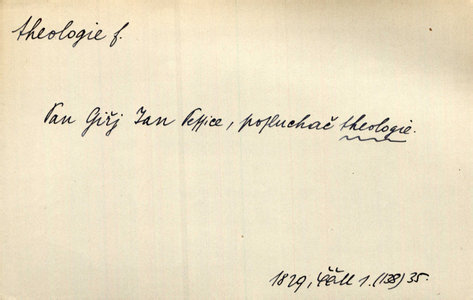 theologie f.
Pan Giřj Jan Pessice, posluchač theologie.
1829, ČČM 1.(138)35.